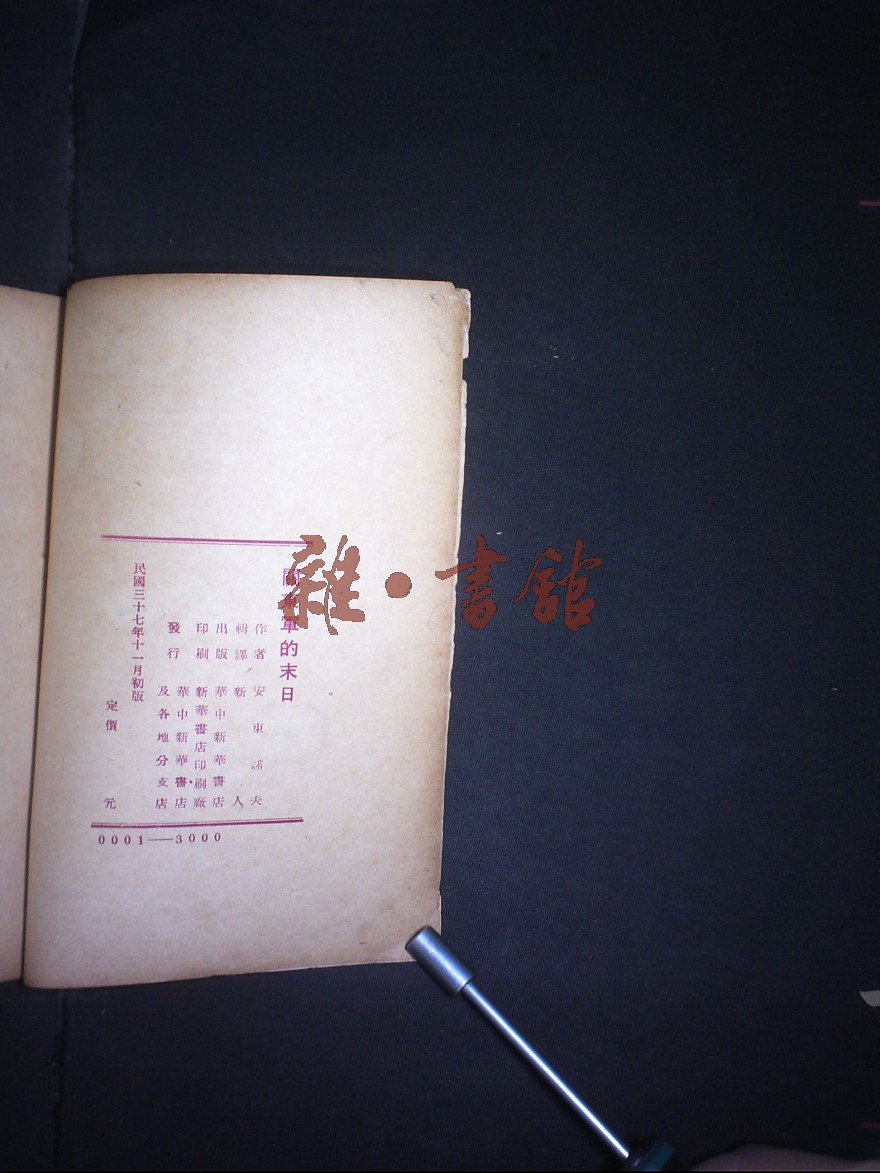 關東軍的末日
作者 安東諾夫
輯譯 新人
出版 華中新華書店
印刷 新華書店印刷廠
發行 華中新華書店
及各地分支店
民國三十七年十一月初版
定價 元
0001—3000
雜·書館